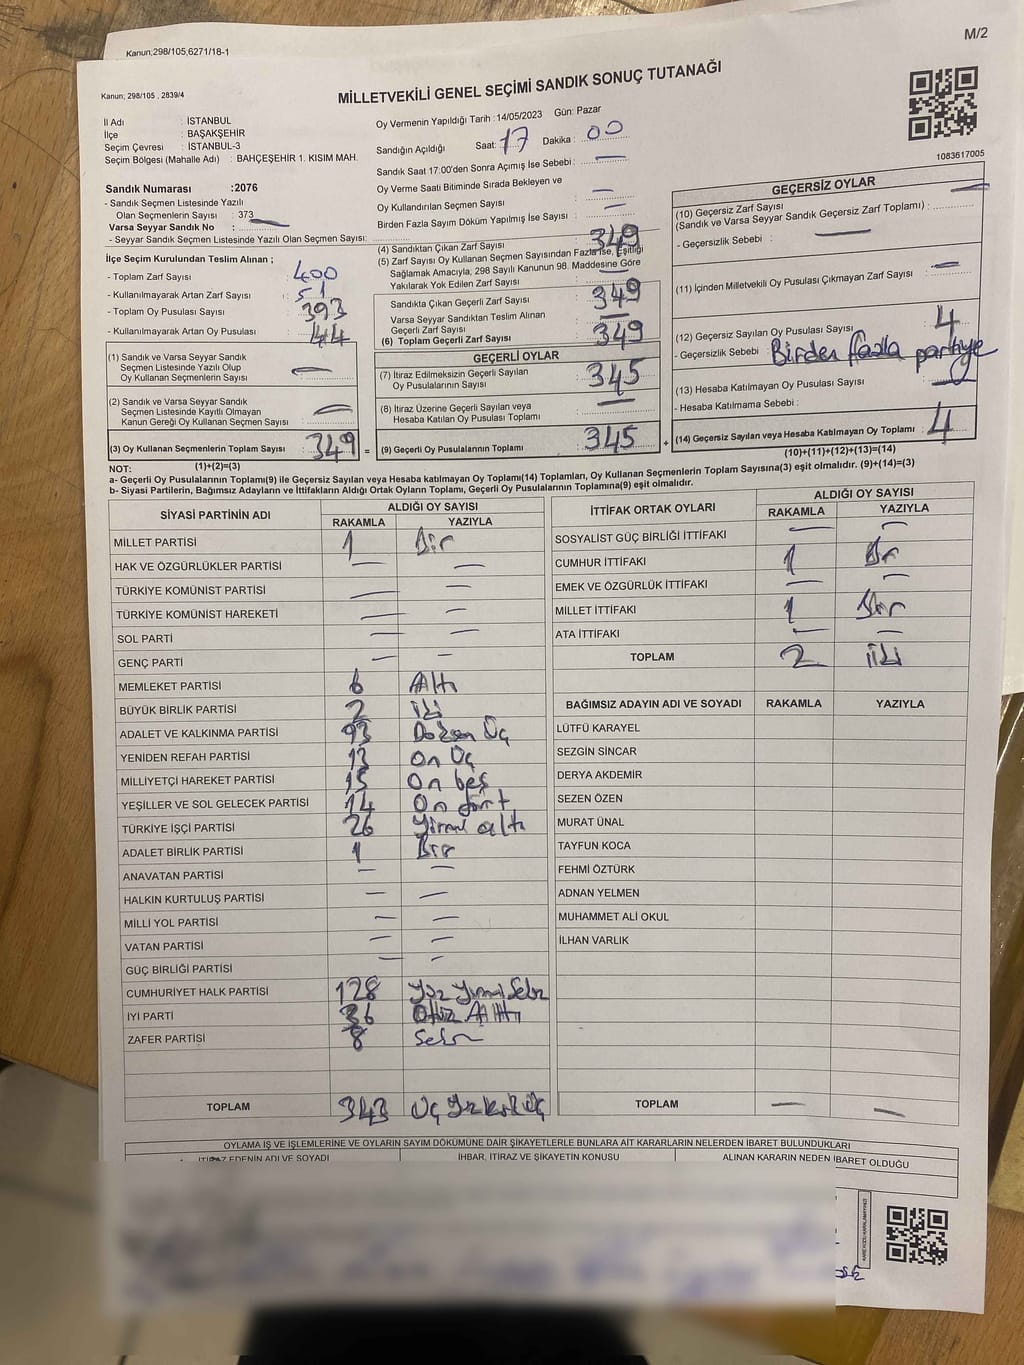 Kanun;298/105,6271/18-1
M/2
Kanun; 298/105 , 2839/4
MİLLETVEKİLİ GENEL SEÇİMİ SANDIK SONUÇ TUTANAĞI
1083617005
İl Adı : İSTANBUL
İlçe : BAŞAKŞEHİR
Seçim Çevresi : İSTANBUL-3
Seçim Bölgesi (Mahalle Adı) : BAHÇEŞEHİR 1. KISIM MAH.
Sandık Numarası :2076
- Sandık Seçmen Listesinde Yazılı
Olan Seçmenlerin Sayısı : 373
Varsa Seyyar Sandık No : —
- Seyyar Sandık Seçmen Listesinde Yazılı Olan Seçmen Sayısı:
İlçe Seçim Kurulundan Teslim Alınan ;
- Toplam Zarf Sayısı : 400
- Kullanılmayarak Artan Zarf Sayısı : 51
- Toplam Oy Pusulası Sayısı : 393
- Kullanılmayarak Artan Oy Pusulası : 44
(1) Sandık ve Varsa Seyyar Sandık
Seçmen Listesinde Yazılı Olup
Oy Kullanan Seçmenlerin Sayısı : —
(2) Sandık ve Varsa Seyyar Sandık
Seçmen Listesinde Kayıtlı Olmayan
Kanun Gereği Oy Kullanan Seçmen Sayısı : —
(3) Oy Kullanan Seçmenlerin Toplam Sayısı : 349 =
(1)+(2)=(3)
Oy Vermenin Yapıldığı Tarih : 14/05/2023 Gün: Pazar
Sandığın Açıldığı Saat: 17 Dakika : 00
Sandık Saat 17:00'den Sonra Açımış İse Sebebi : —
Oy Verme Saati Bitiminde Sırada Bekleyen ve
Oy Kullandırılan Seçmen Sayısı : —
Birden Fazla Sayım Döküm Yapılmış İse Sayısı : —
(4) Sandıktan Çıkan Zarf Sayısı : 349
(5) Zarf Sayısı Oy Kullanan Seçmen Sayısından Fazla İse, Eşitliği
Sağlamak Amacıyla, 298 Sayılı Kanunun 98. Maddesine Göre
Yakılarak Yok Edilen Zarf Sayısı : —
Sandıkta Çıkan Geçerli Zarf Sayısı : 349
Varsa Seyyar Sandıktan Teslim Alınan
Geçerli Zarf Sayısı : —
(6) Toplam Geçerli Zarf Sayısı : 349
GEÇERLİ OYLAR
(7) İtiraz Edilmeksizin Geçerli Sayılan
Oy Pusulalarının Sayısı : 345
(8) İtiraz Üzerine Geçerli Sayılan veya
Hesaba Katılan Oy Pusulası Toplamı : —
(9) Geçerli Oy Pusulalarının Toplamı : 345 +
GEÇERSİZ OYLAR
(10) Geçersiz Zarf Sayısı
(Sandık ve Varsa Seyyar Sandık Geçersiz Zarf Toplamı) : —
- Geçersizlik Sebebi : —
(11) İçinden Milletvekili Oy Pusulası Çıkmayan Zarf Sayısı : —
(12) Geçersiz Sayılan Oy Pusulası Sayısı : 4
- Geçersizlik Sebebi : Birden fazla partiye
(13) Hesaba Katılmayan Oy Pusulası Sayısı : —
- Hesaba Katılmama Sebebi :
(14) Geçersiz Sayılan veya Hesaba Katılmayan Oy Toplamı : 4
(10)+(11)+(12)+(13)=(14)
NOT:
a- Geçerli Oy Pusulasının Toplamı(9) ile Geçersiz Sayılan veya Hesaba katılmayan Oy Toplamı(14) Toplamları, Oy Kullanan Seçmenlerin Toplam Sayısına(3) eşit olmalıdır. (9)+(14)=(3)
b- Siyasi Partilerin, Bağımsız Adayların ve İttifakların Aldığı Ortak Oyların Toplamı, Geçerli Oy Pusulalarının Toplamına(9) eşit olmalıdır.
SİYASİ PARTİNİN ADI ALDIĞI OY SAYISI
RAKAMLA YAZIYLA
MİLLET PARTİSİ 1 Bir
HAK VE ÖZGÜRLÜKLER PARTİSİ — —
TÜRKİYE KOMÜNİST PARTİSİ — —
TÜRKİYE KOMÜNİST HAREKETİ — —
SOL PARTİ — —
GENÇ PARTİ — —
MEMLEKET PARTİSİ 6 Altı
BÜYÜK BİRLİK PARTİSİ 2 iki
ADALET VE KALKINMA PARTİSİ 93 Doksan Üç
YENİDEN REFAH PARTİSİ 13 On Üç
MİLLİYETÇİ HAREKET PARTİSİ 15 On beş
YEŞİLLER VE SOL GELECEK PARTİSİ 14 On dört
TÜRKİYE İŞÇİ PARTİSİ 26 Yirmi altı
ADALET BİRLİK PARTİSİ 1 Bir
ANAVATAN PARTİSİ — —
HALKIN KURTULUŞ PARTİSİ — —
MİLLİ YOL PARTİSİ — —
VATAN PARTİSİ — —
GÜÇ BİRLİĞİ PARTİSİ — —
CUMHURİYET HALK PARTİSİ 128 Yüz Yirmi Sekiz
İYİ PARTİ 36 Otuz Altı
ZAFER PARTİSİ 8 Sekiz
TOPLAM 343 Üç Yüz Kırk Üç
İTTİFAK ORTAK OYLARI ALDIĞI OY SAYISI
RAKAMLA YAZIYLA
SOSYALİST GÜÇ BİRLİĞİ İTTİFAKI — —
CUMHUR İTTİFAKI 1 Bir
EMEK VE ÖZGÜRLÜK İTTİFAKI — —
MİLLET İTTİFAKI 1 Bir
ATA İTTİFAKI — —
TOPLAM 2 iki
BAĞIMSIZ ADAYIN ADI VE SOYADI RAKAMLA YAZIYLA
LÜTFÜ KARAYEL
SEZGİN SİNCAR
DERYA AKDEMİR
SEZEN ÖZEN
MURAT ÜNAL
TAYFUN KOCA
FEHMİ ÖZTÜRK
ADNAN YELMEN
MUHAMMET ALİ OKUL
İLHAN VARLIK
TOPLAM — —
OYLAMA İŞ VE İŞLEMLERİNE VE OYLARIN SAYIM DÖKÜMÜNE DAİR ŞİKAYETLERLE BUNLARA AİT KARARLARIN NELERDEN İBARET BULUNDUKLARI
İTİRAZ EDENİN ADI VE SOYADI İHBAR, İTİRAZ VE ŞİKAYETİN KONUSU ALINAN KARARIN NEDEN İBARET OLDUĞU
KAREKODU KARALAMAYINIZ